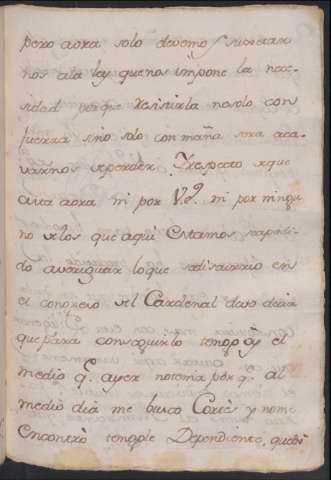 pero aora solo devemos sugetar
nos ala ley quenos impone la nece-
sidad porque resistirla nosolo con
fuerza sino solo con maña sera aca-
varnos deperder. Y respecto aque
asta aora ni por Vd. ni por ningu
no delos que aqui estamos sepodi-
do averiguar loque sediscurrio en
el congreso del Cardenal devo decir
que para conseguirlo tengo oy el
medio q.e ayer notenia por q.e al
medio dia me busco Cortés y nome
encontró tengole Dependiente, que